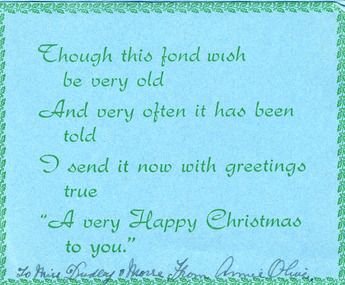 Though this fond wish
be very old
And very often it has been
told
I send it now with greetings
true
"A very Happy Christmas
to you."
To Miss Dudley & Morra From Annie Olive.